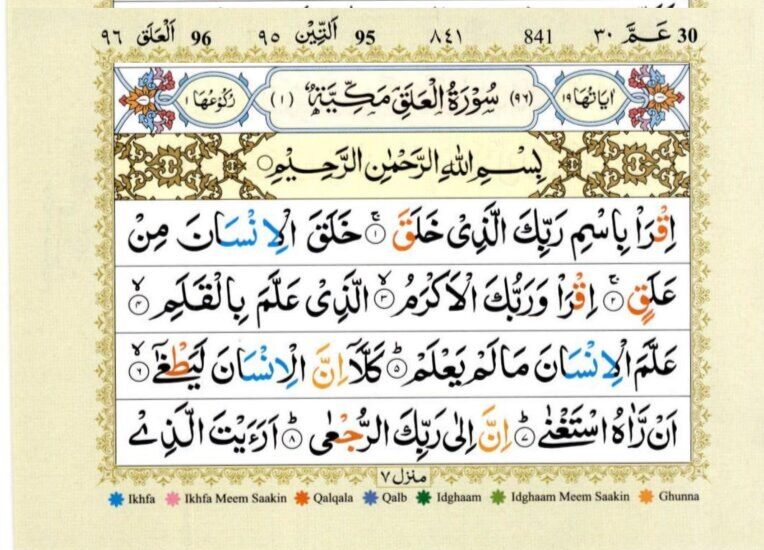 ٩٦ اَلْعَلَق 96 ٩٥ اَلتِّيْن 95 ٨٤١ 841 ٣٠ عَـمَّ 30
اٰيَاتُهَا ١٩ (٩٦) سُوْرَةُ الْعَلَقِ مَكِّيَّةٌ (١) رُكُوْعُهَا ١
بِسْمِ اللّٰهِ الرَّحْمٰنِ الرَّحِيْمِ
اِقْرَاْ بِاسْمِ رَبِّكَ الَّذِیْ خَلَقَ ۚ﴿١﴾ خَلَقَ الْاِنْسَانَ مِنْ
عَلَقٍ ۚ﴿٢﴾ اِقْرَاْ وَرَبُّكَ الْاَكْرَمُ ۙ﴿٣﴾ الَّذِیْ عَلَّمَ بِالْقَلَمِ ۙ﴿٤﴾
عَلَّمَ الْاِنْسَانَ مَا لَمْ يَعْلَمْ ؕ﴿٥﴾ كَلَّاۤ اِنَّ الْاِنْسَانَ لَيَطْغٰۤى ۙ﴿٦﴾
اَنْ رَّاٰهُ اسْتَغْنٰى ؕ﴿٧﴾ اِنَّ اِلٰى رَبِّكَ الرُّجْعٰى ؕ﴿٨﴾ اَرَءَيْتَ الَّذِیْ
منزل ٧
Ikhfa Ikhfa Meem Saakin Qalqala Qalb Idghaam Idghaam Meem Saakin Ghunna